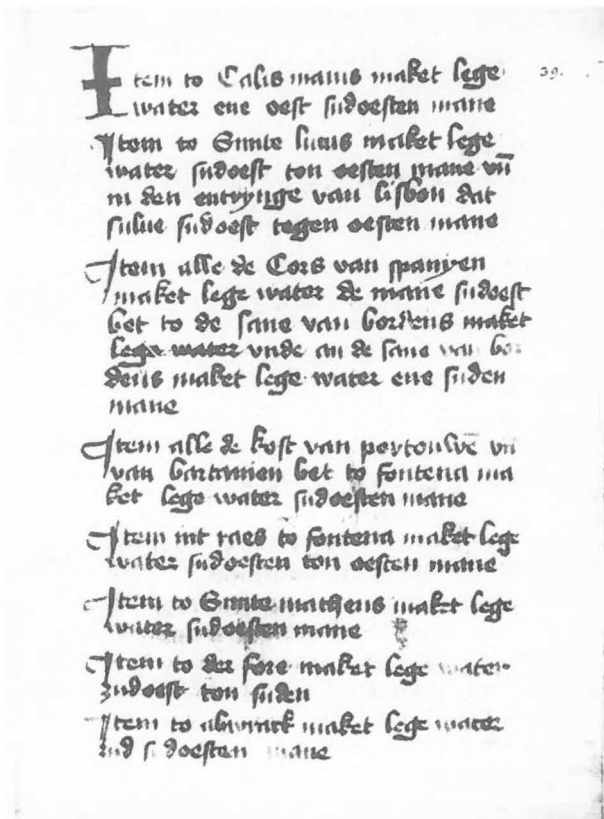 39.
Item to Calis maius maket lege
water ene oest sudoesten mane
Item to Sunte lucus maket lege
water sudoest ton oesten mane vn̄
in den entrynge van lisbon dat
sulue sudoest tegen oesten mane
Item alle de Cors van spanyen
maket lege water de mane sudoest
bet to de sane van bordens maket
lege water vnde an de sane van bor
deus maket lege water ene suden
mane
Item alle de kost van poytouwē vn̄
van bartanien bet to fontena ma
ket lege water sudoesten mane
Item int raes to fontena maket lege
water sudoesten ton oesten mane
Item to Sunte matheus maket lege
water sudoesten mane
Item to der fore maket lege water
zudoest ton suden
Item to maket lege water
zud doesten mane